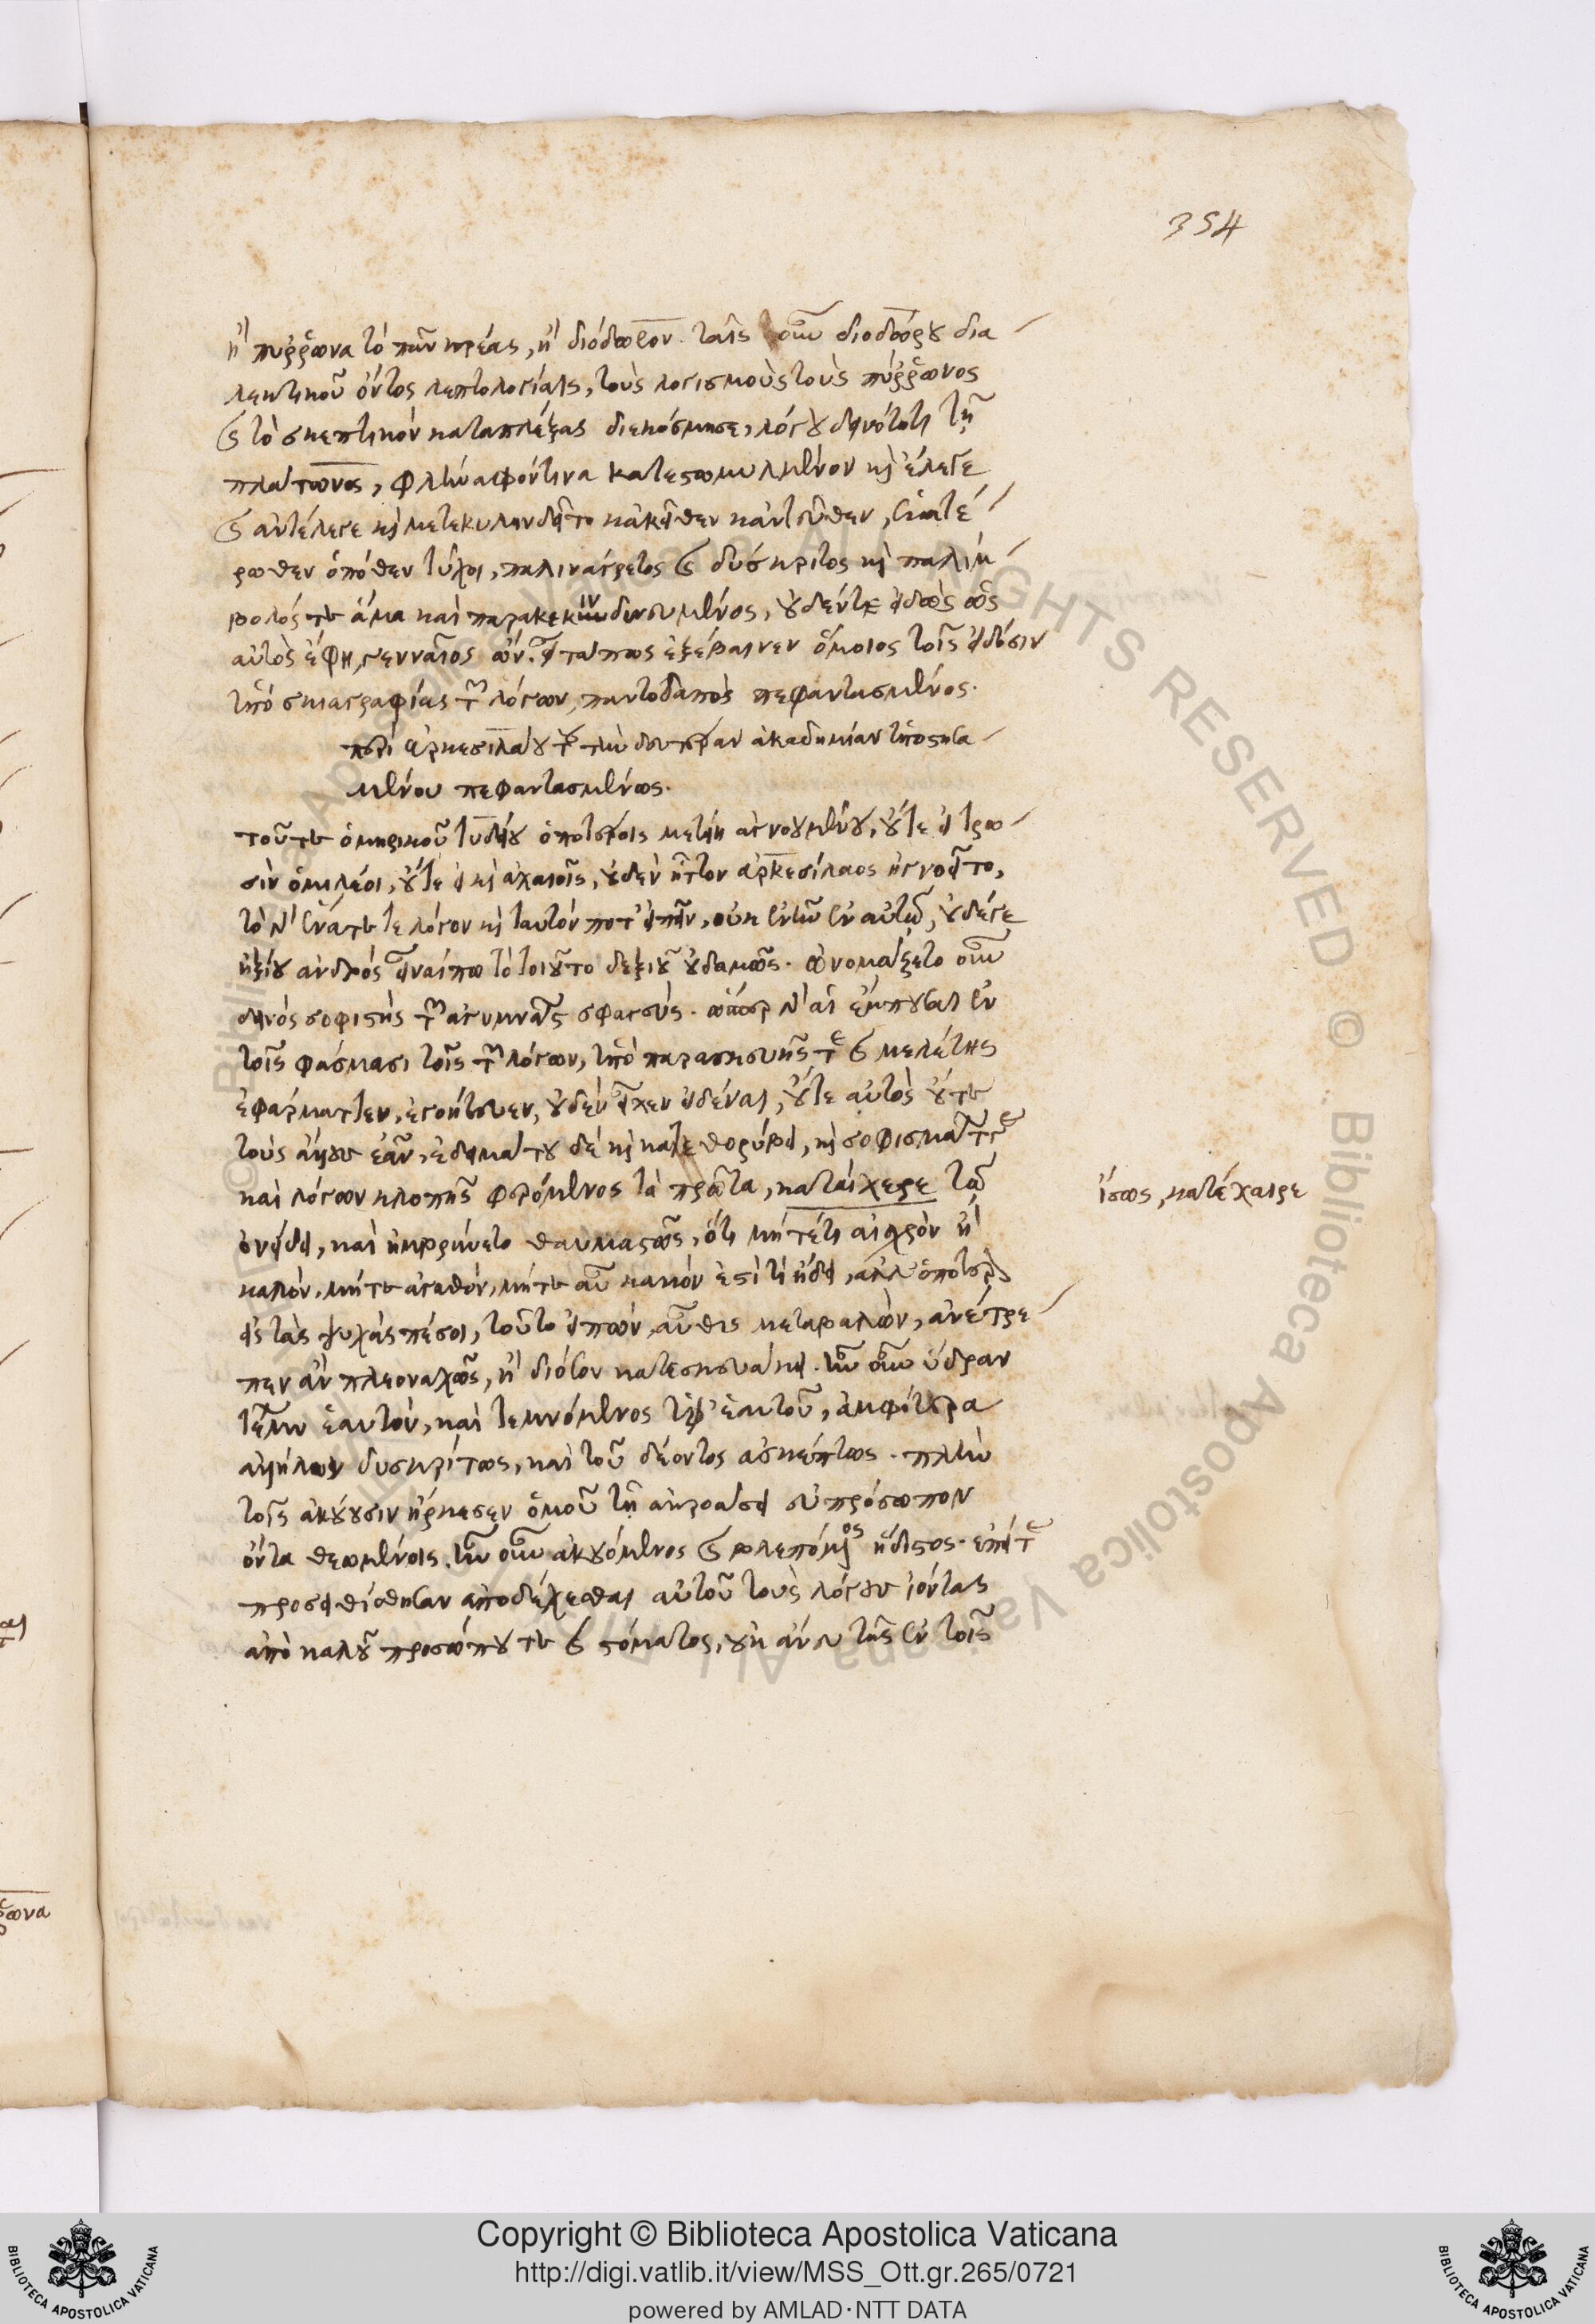 354
ἢ πύῤῥωνα τὸ πᾶν κρέας, ἢ διόδωρον. ταῖς οὖν διοδώρου δια
λεκτικοῦ ὄντος λεπτολογίαις, τοὺς λογισμοὺς τοὺς πύῤῥωνος
καὶ τὸ σκεπτικὸν καταπλέξας διεκόσμησε, λόγου δεινότητι τῇ
πλάτωνος, φλήναφόν τινα κατεστωμυλμένον καὶ ἔλεγε
καὶ ἀντέλεγε καὶ μετεκυλινδεῖτο κἀκεῖθεν κἀντεῦθεν, ἑκατέ
ρωθεν ὁπόθεν τύχοι, παλινάγρετος καὶ δύσκριτος καὶ παλίμ
βολός τε ἅμα καὶ παρακεκινδυνευμένος, οὐδέν τε εἰδὼς ὡς
αὐτὸς ἔφη, γενναῖος ὤν. εἶτά πως ἐξέβαινεν ὅμοιος τοῖς εἰδόσιν
ὑπὸ σκιαγραφίας τῶν λόγων, παντοδαπὸς πεφαντασμένος.
περὶ ἀρκεσιλάου τοῦ τὴν δευτέραν ἀκαδημίαν ὑποστησα
μένου πεφαντασμένως.
τοῦ τε ὁμηρικοῦ τυδέου ὁποτέροις μετείη ἀγνοουμένου, οὔτε εἰ τρω
σὶν ὁμιλέοι, οὔτε εἰ καὶ ἀχαιοῖς, οὐδὲν ἧττον ἀρκεσίλαος ἠγνοεῖτο,
τὸ δ' ἕνα τε λόγον καὶ ταυτόν ποτ' εἰπεῖν, οὐκ ἐνῆν ἐν αὐτῷ, οὐδέ γε
ἠξίου ἀνδρὸς εἶναί πω τὸ τοιοῦτο δεξιοῦ οὐδαμῶς. ὠνομάζετο οὖν
δεινὸς σοφιστὴς τῶν ἀγυμνάστων σφαγεύς. ὥσπερ δ' αἱ ἔμπουσαι ἐν
τοῖς φάσμασι τοῖς τῶν λόγων, ὑπὸ παρασκευῆς τε καὶ μελέτης
ἐφάρματτεν, ἐγοήτευεν, οὐδὲν εἶχεν εἰδέναι, οὔτε αὐτὸς οὔτε
τοὺς ἄλλους ἐᾶν, ἐδειμάτου δὲ καὶ κατεθορύβει, καὶ σοφισμάτων τε
καὶ λόγων κλοπῆς φερόμενος τὰ πρῶτα, καταίχερε τῷ
ὀνείδει, καὶ ἡμβρύνετο θαυμαστῶς, ὅτι μήτέ τι αἰσχρὸν ἢ
καλὸν, μήτε ἀγαθὸν, μήτε αὖ κακὸν ἐστί τι ᾔδει, ἀλλ' ὁπότερον
εἰς τὰς ψυχὰς πέσοι, τοῦτο εἰπὼν, αὖθις μεταβαλὼν, ἀνέτρε
πεν ἂν πλεοναχῶς, ἢ δι' ὅσον κατεσκευάκει. ἦν οὖν ὕδραν
τέμνων ἑαυτὸν, καὶ τεμνόμενος ὑφ' ἑαυτοῦ, ἀμφότερα
ἀλλήλων δυσκρίτως, καὶ τοῦ δέοντος ἀσκέπτως. πλὴν
τοῖς ἀκούουσιν ἤρκεσεν ὁμοῦ τῇ ἀκροάσει εὐπρόσωπον
ὄντα θεωμένοις. ἦν οὖν ἀκουόμενος καὶ βλεπόμενος ἥδιστος. ἐπεί τε
προσειθίσθησαν ἀποδέχεσθαι αὐτοῦ τοὺς λόγους ἰόντας
ἀπὸ καλοῦ προσώπου τε καὶ στόματος, οὐκ ἄνευ τῆς ἐν τοῖς
ἴσως, κατέχαιρε
Copyright © Biblioteca Apostolica Vaticana
http://digi.vatlib.it/view/MSS_Ott.gr.265/0721
powered by AMLAD·NTT DATA